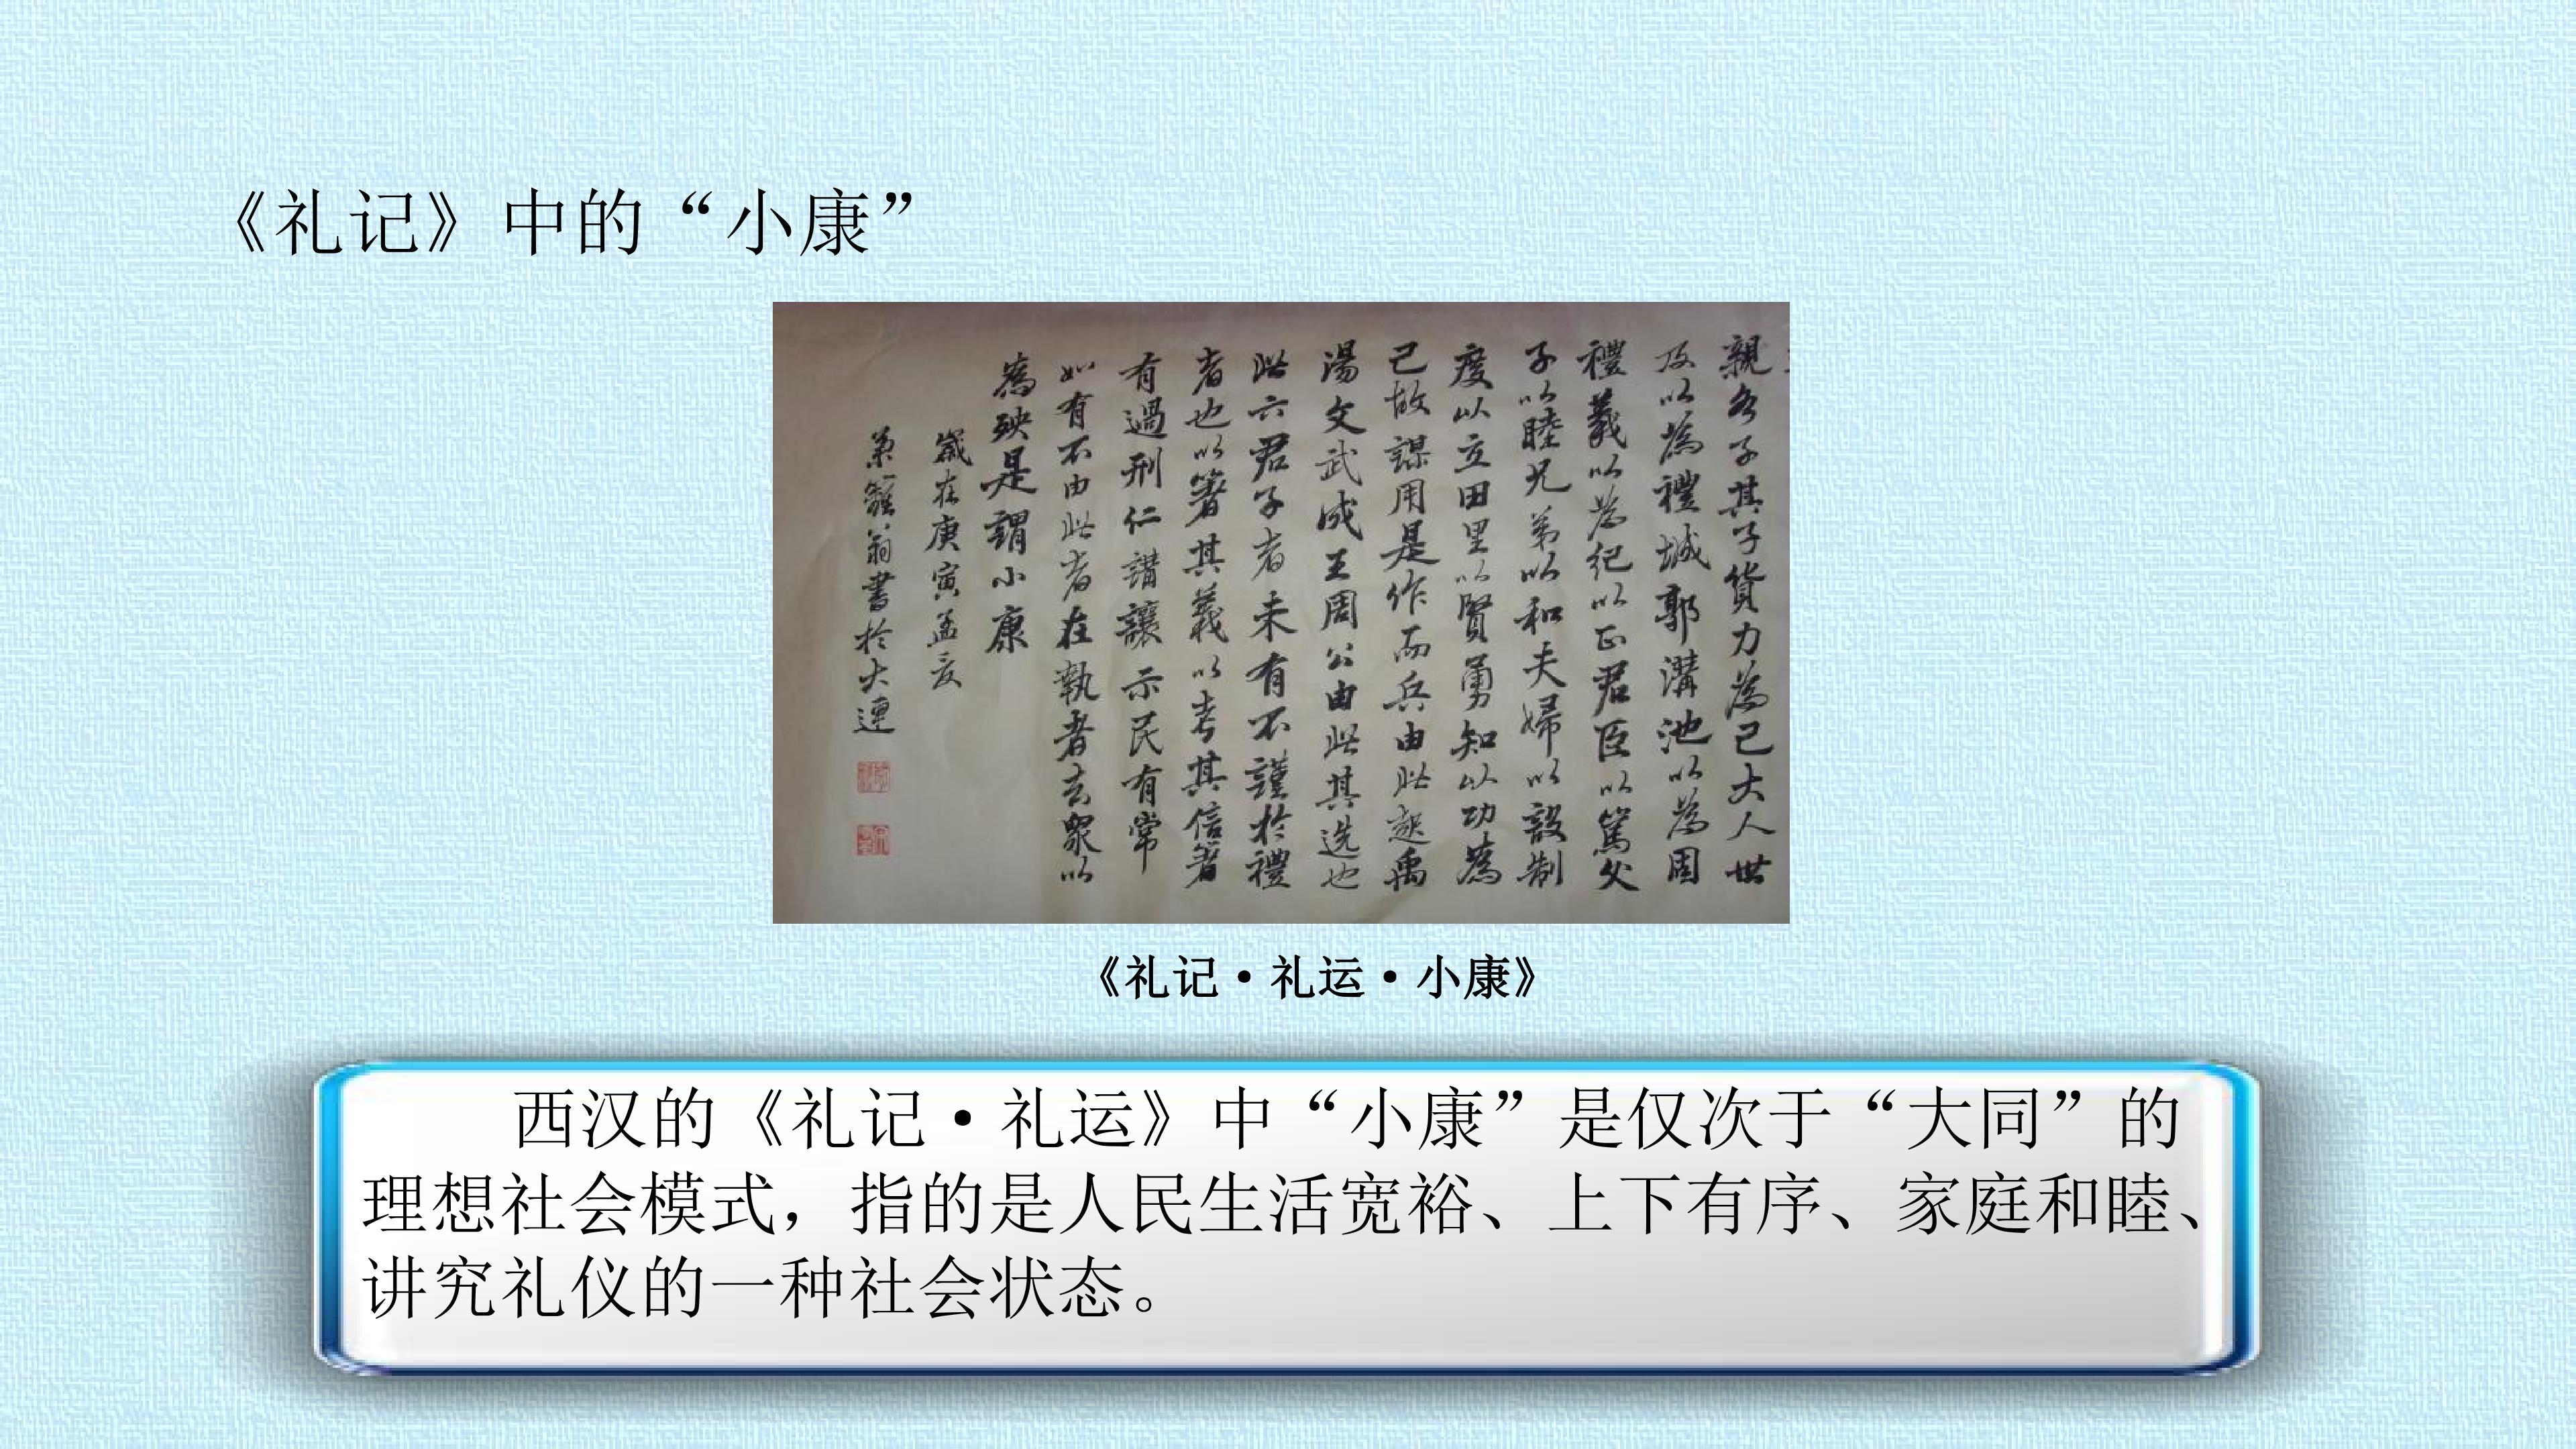 《礼记》中的“小康”
親各子其子貨力為己大人世
及以為禮城郭溝池以為固
禮義以為紀以正君臣以篤父
子以睦兄弟以和夫婦以設制
度以立田里以賢勇知以功為
己故謀用是作而兵由此起禹
湯文武成王周公由此其选也
此六君子者未有不謹於禮
者也以著其義以考其信著
有過刑仁講讓示民有常
如有不由此者在執者去眾以
為殃是謂小康
歲在庚寅孟夏
翁書於大連
《礼记·礼运·小康》
西汉的《礼记·礼运》中“小康”是仅次于“大同”的
理想社会模式，指的是人民生活宽裕、上下有序、家庭和睦、
讲究礼仪的一种社会状态。